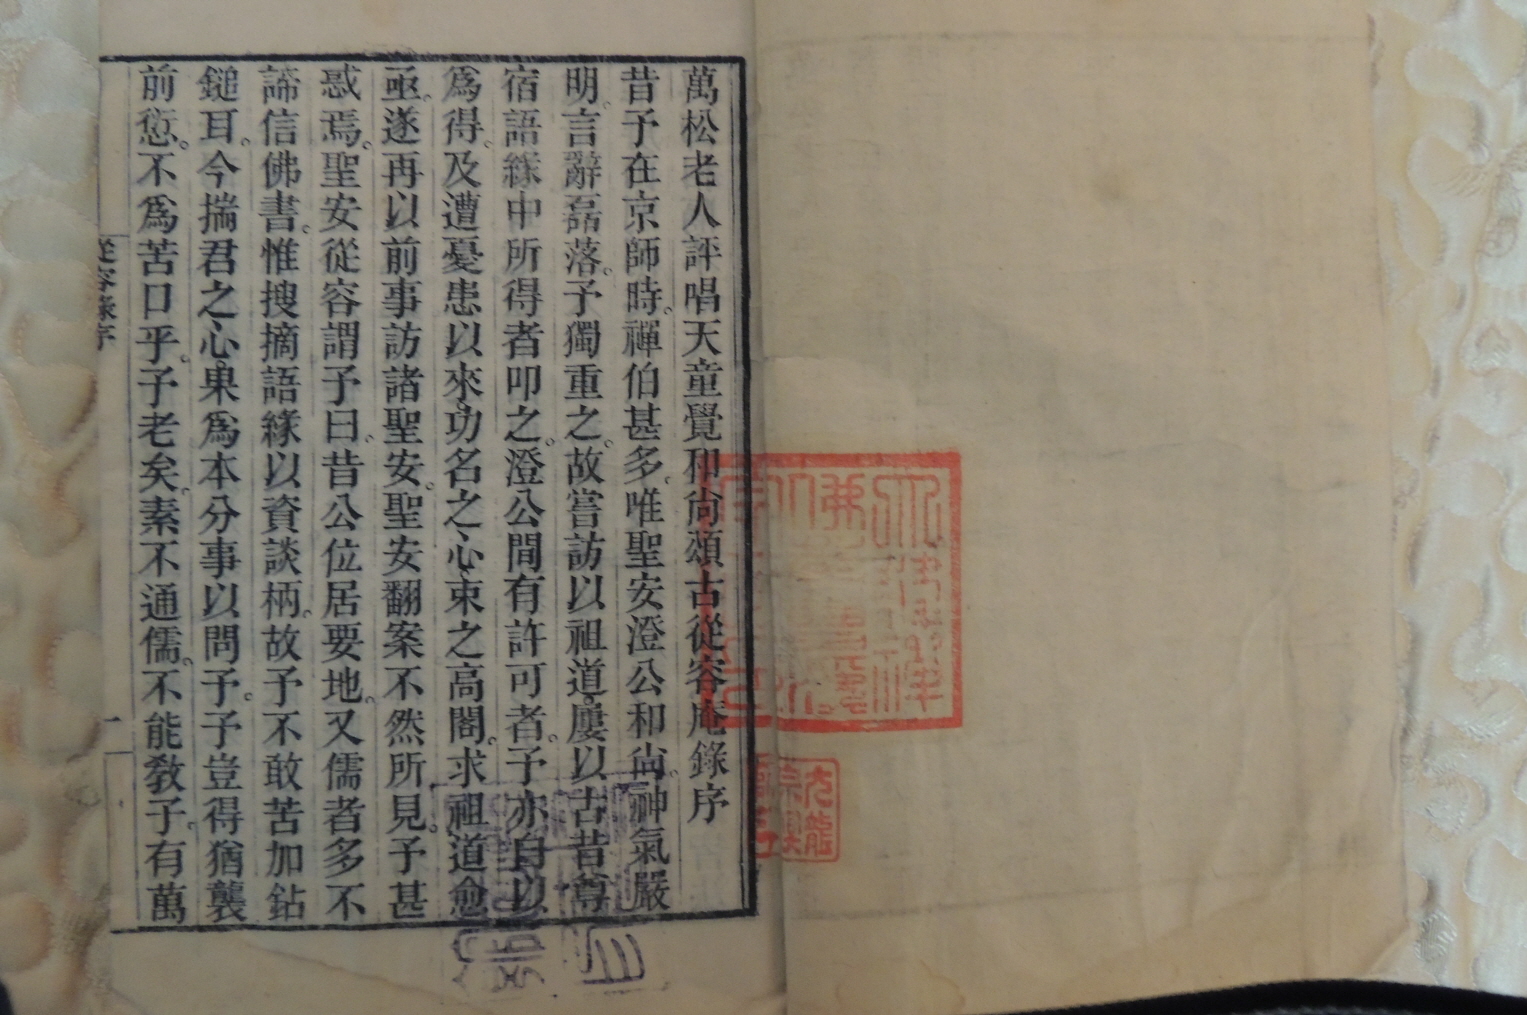 萬松老人評唱天童覺和尚頌古從容庵錄序
昔予在京師時。禪伯甚多。唯聖安澄公和尚。神氣嚴
明。言辭磊落。予獨重之。故嘗訪以祖道。屢以古昔尊
宿語緣中所得者叩之。澄公間有許可者。予亦自以
爲得。及遭憂患以來。功名之心。束之高閣。求祖道愈
亟。遂再以前事訪諸聖安。聖安翻案不然所見。予甚
惑焉。聖安從容謂予曰。昔公位居要地。又儒者多不
諦信佛書。惟搜摘語緣以資談柄。故予不敢苦加鉆
鎚耳。今揣君之心。果爲本分事以問予。予豈得猶襲
前愆。不爲苦口乎。予老矣。素不通儒。不能敎子。有萬
從容錄序
一
九龍